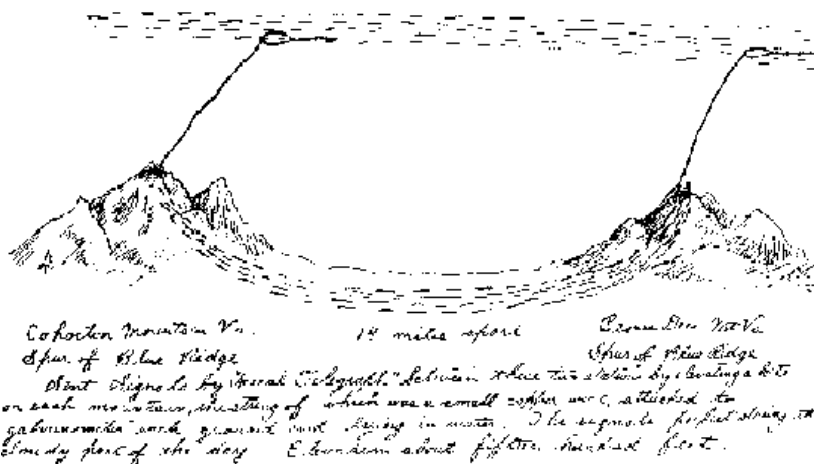 Cohocton Mountain Va. 14 miles apart Mt Va
Spur of Blue Ridge Spur of Blue Ridge
Sent signals by "Aerial Telegraph" between these two stations by elevating a kite
on each mountain, the string of which was a small copper wire, attached to
galvanometer and ground and laying in water. The signals perfect during the
cloudy part of the day Elevation about fifteen hundred feet.